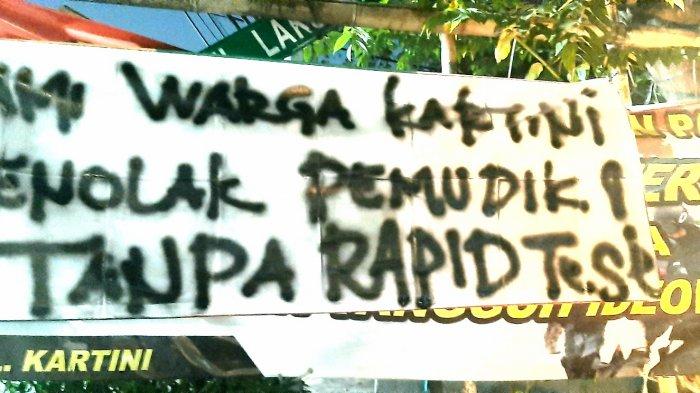 LAK
AMI WARGA KARTINI
ENOLAK PEMUDIK!
TANPA RAPID Test
L. KARTINI